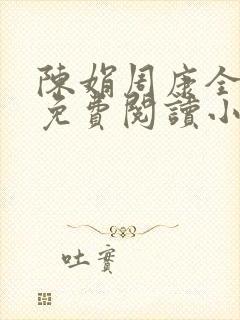 陳娟周康全
免費閱讀小
吐實